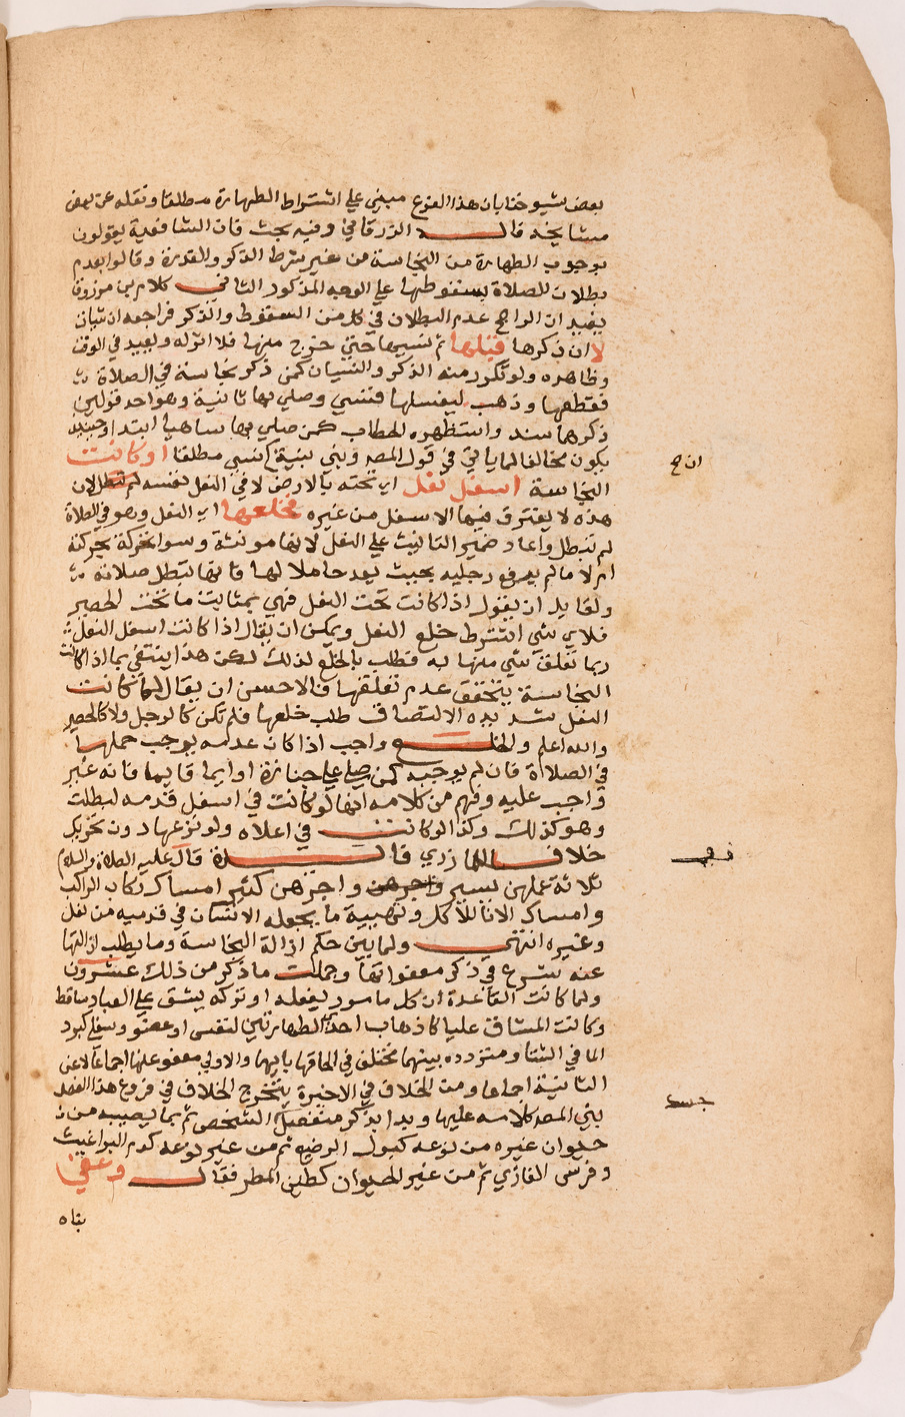 بعض شيوخنا بان هذا الفرع مبني علي اشتراط الطهارة مطلقا ونقله عن بعض
مشايخه قال الزرقاني وفيه بحث فان الشافعية يقولون
بوجوب الطهارة من النجاسة من غير شرط الذكر والقدرة وقالوا بعدم
بطلان الصلاة بسقوطها علي الوجه المذكور الثاني كلام بن مرزوق
يفيد ان الراجح عدم البطلان في كل من السقوط والذكر فراجعه ان شيت
لا ان ذكرها قبلها ثم نسيها حتي خرج منها فلا اثر له ويعيد في الوقت
وظاهره ولو تكرر منه الذكر والنسيان كمن ذكر نجاسة في الصلاة
فقطعها وذهب ليغسلها فنسي وصلي بها ثانية وهو احد قولين
ذكرهما سند واستظهره الحطاب كمن صلي بها ساهيا ابتدا وحينيذ
يكون مخالفا لما ياتي في قول المص وبني بنية ان نسي مطلقا او كانت
ان ح
النجاسة اسفل نعل اي تحته بالارض لا في النعل نفسه لم تبطل لان
هذه لا يفترق فيها الاسفل من غيره فخلعها اي النعل وهو في الصلاة
لم تبطل واعاد ضمير التانيث علي النعل لانها مونثة وسوا تحركه بحركته
ام لا ما لم يرفع رجليه بحيث يعد حاملا لها فانها تبطل صلاته
ولقايل ان يقول اذا كانت تحت النعل فهي بمثابة ما تحت الحصير
فلاي شي اشترط خلع النعل ويمكن ان يقال اذا كانت اسفل النعل
ربما تعلق شي منها به فطلب بالخلع لذلك لكن هذا ينتفي بما اذا كانت
النجاسة يتحقق عدم تعلقها فالاحسن ان يقال لما كانت
النعل شديدة الالتصاق طلب خلعها فلم تكن كالرجل ولا كالحصير
والله اعلم والخلع واجب اذا كان عدمه يوجب حملها
في الصلاة فان لم يوجبه كمن صلي علي جنازة او ايما قايما فانه غير
واجب عليه وفهم من كلامه انها لو كانت في اسفل قدمه لبطلت
وهو كذلك وكذا لو كانت في اعلاه ولو نزعها دون تحريك
خلافا للمازري فايدة قال عليه الصلاة والسلام
ثلاثة حملهن يسير واجرهن كثير امساك ركاب الراكب
وامساك الانا للاكل وتهيية ما يجعله الانسان في قدميه من نعل
وغيره انتهي ولما بين حكم ازالة النجاسة وما يطلب ازالتها
عنه شرع في ذكر معفواتها وجملت ما ذكر من ذلك عشرون
ولما كانت القاعدة ان كل مامور بفعله او تركه يشق علي العباد ساقط
وكانت المشاق عليا كاذهاب احدي الطهارتين لنفس او عضو وسفلي كبرد
الما في الشتا ومترددة بينهما مختلف في الحاقها بايهما والاولي معفو عنها اجماعا لا عن
الثانية اجماعا ومن الخلاف في الاخيرة يتخرج الخلاف في فروع هذا الفصل
بني المص كلامه عليها وبدا بذكر منفصل الشخص ثم بما يصيبه من
حيوان غيره من نوعه كبول الرضيع ثم من غير نوعه كدم البراغيث
وفرس الغازي ثم من غير الحيوان كطين المطر فقال وعفي
بناه